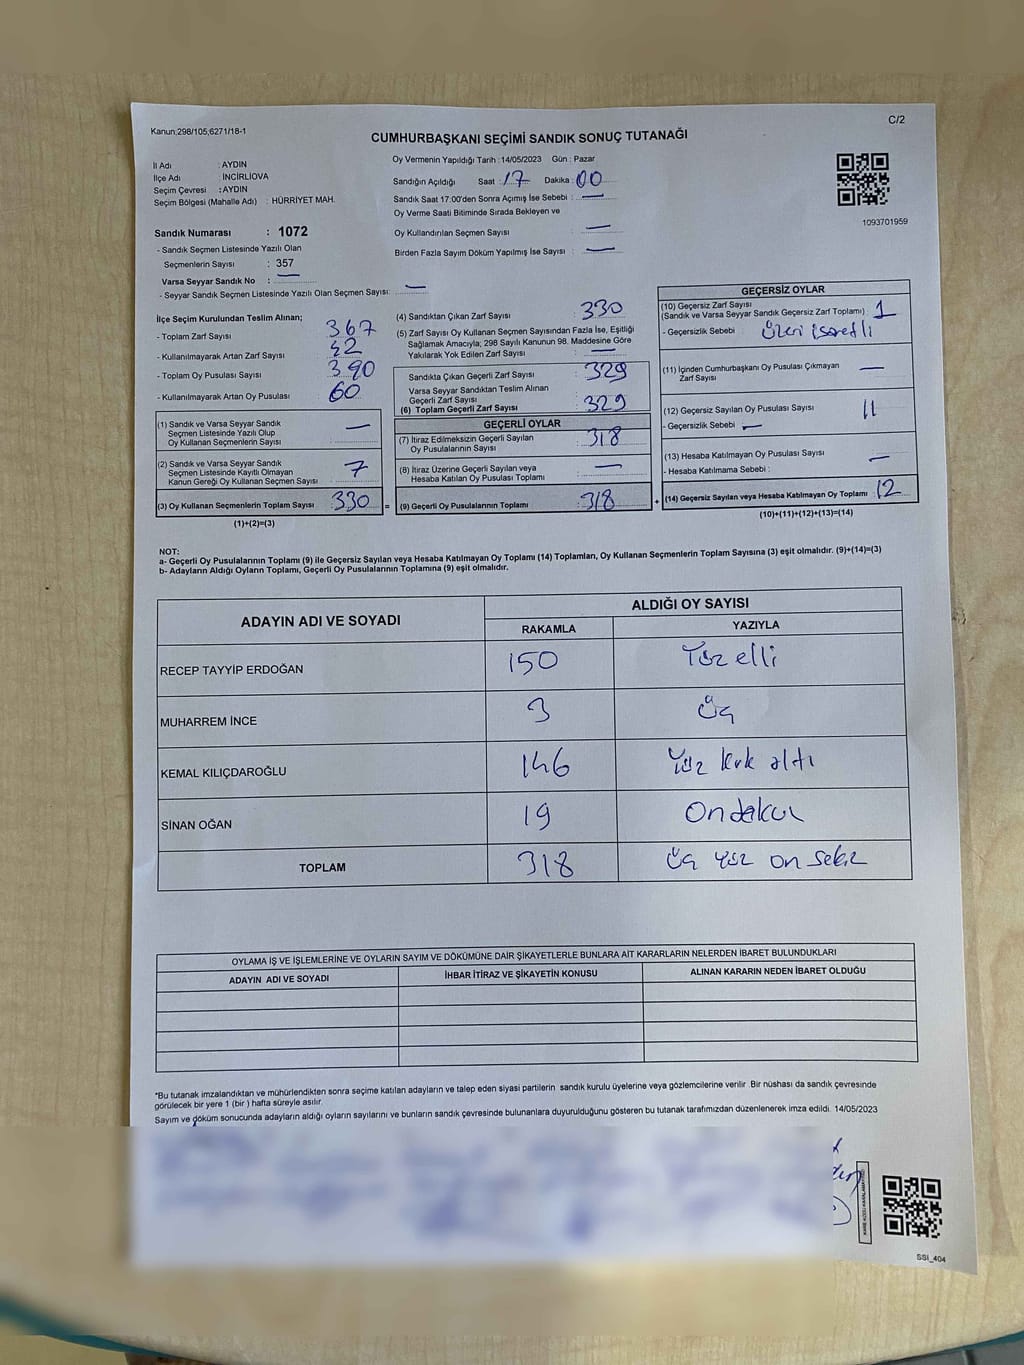 Kanun;298/105,6271/18-1
C/2
CUMHURBAŞKANI SEÇİMİ SANDIK SONUÇ TUTANAĞI
İl Adı : AYDIN
İlçe Adı : İNCİRLİOVA
Seçim Çevresi : AYDIN
Seçim Bölgesi (Mahalle Adı) : HÜRRİYET MAH.
Oy Vermenin Yapıldığı Tarih : 14/05/2023 Gün : Pazar
Sandığın Açıldığı Saat : 17 Dakika : 00
Sandık Saat 17:00'den Sonra Açımış İse Sebebi : —
Oy Verme Saati Bitiminde Sırada Bekleyen ve
Oy Kullandırılan Seçmen Sayısı —
Birden Fazla Sayım Döküm Yapılmış İse Sayısı : —
1093701959
Sandık Numarası : 1072
- Sandık Seçmen Listesinde Yazılı Olan
Seçmenlerin Sayısı : 357
Varsa Seyyar Sandık No : —
- Seyyar Sandık Seçmen Listesinde Yazılı Olan Seçmen Sayısı: —
İlçe Seçim Kurulundan Teslim Alınan;
- Toplam Zarf Sayısı 367
- Kullanılmayarak Artan Zarf Sayısı 42
- Toplam Oy Pusulası Sayısı 390
- Kullanılmayarak Artan Oy Pusulası 60
(1) Sandık ve Varsa Seyyar Sandık
Seçmen Listesinde Yazılı Olup
Oy Kullanan Seçmenlerin Sayısı —
(2) Sandık ve Varsa Seyyar Sandık
Seçmen Listesinde Kayıtlı Olmayan
Kanun Gereği Oy Kullanan Seçmen Sayısı 7
(3) Oy Kullanan Seçmenlerin Toplam Sayısı 330 =
(1)+(2)=(3)
(4) Sandıktan Çıkan Zarf Sayısı : 330
(5) Zarf Sayısı Oy Kullanan Seçmen Sayısından Fazla İse, Eşitliği
Sağlamak Amacıyla; 298 Sayılı Kanunun 98. Maddesine Göre
Yakılarak Yok Edilen Zarf Sayısı —
Sandıkta Çıkan Geçerli Zarf Sayısı : 329
Varsa Seyyar Sandıktan Teslim Alınan
Geçerli Zarf Sayısı
(6) Toplam Geçerli Zarf Sayısı : 329
GEÇERLİ OYLAR
(7) İtiraz Edilmeksizin Geçerli Sayılan
Oy Pusulalarının Sayısı : 318
(8) İtiraz Üzerine Geçerli Sayılan veya
Hesaba Katılan Oy Pusulası Toplamı —
(9) Geçerli Oy Pusulalarının Toplamı : 318 +
GEÇERSİZ OYLAR
(10) Geçersiz Zarf Sayısı
(Sandık ve Varsa Seyyar Sandık Geçersiz Zarf Toplamı) 1
- Geçersizlik Sebebi : Üzeri işaretli
(11) İçinden Cumhurbaşkanı Oy Pusulası Çıkmayan
Zarf Sayısı —
(12) Geçersiz Sayılan Oy Pusulası Sayısı 11
- Geçersizlik Sebebi —
(13) Hesaba Katılmayan Oy Pusulası Sayısı —
- Hesaba Katılmama Sebebi :
(14) Geçersiz Sayılan veya Hesaba Katılmayan Oy Toplamı 12
(10)+(11)+(12)+(13)=(14)
NOT:
a- Geçerli Oy Pusulalarının Toplamı (9) ile Geçersiz Sayılan veya Hesaba Katılmayan Oy Toplamı (14) Toplamları, Oy Kullanan Seçmenlerin Toplam Sayısına (3) eşit olmalıdır. (9)+(14)=(3)
b- Adayların Aldığı Oyların Toplamı, Geçerli Oy Pusulalarının Toplamına (9) eşit olmalıdır.
ADAYIN ADI VE SOYADI ALDIĞI OY SAYISI
RAKAMLA YAZIYLA
RECEP TAYYİP ERDOĞAN 150 Yüz elli
MUHARREM İNCE 3 Üç
KEMAL KILIÇDAROĞLU 146 Yüz kırk altı
SİNAN OĞAN 19 On dokuz
TOPLAM 318 Üç yüz on sekiz
OYLAMA İŞ VE İŞLEMLERİNE VE OYLARIN SAYIM VE DÖKÜMÜNE DAİR ŞİKAYETLERLE BUNLARA AİT KARARLARIN NELERDEN İBARET BULUNDUKLARI
ADAYIN ADI VE SOYADI İHBAR İTİRAZ VE ŞİKAYETİN KONUSU ALINAN KARARIN NEDEN İBARET OLDUĞU
*Bu tutanak imzalandıktan ve mühürlendikten sonra seçime katılan adayların ve talep eden siyasi partilerin sandık kurulu üyelerine veya gözlemcilerine verilir. Bir nüshası da sandık çevresinde
görülecek bir yere 1 (bir ) hafta süreyle asılır.
Sayım ve döküm sonucunda adayların aldığı oyların sayılarını ve bunların sandık çevresinde bulunanlara duyurulduğunu gösteren bu tutanak tarafımızdan düzenlenerek imza edildi. 14/05/2023
SSI_404